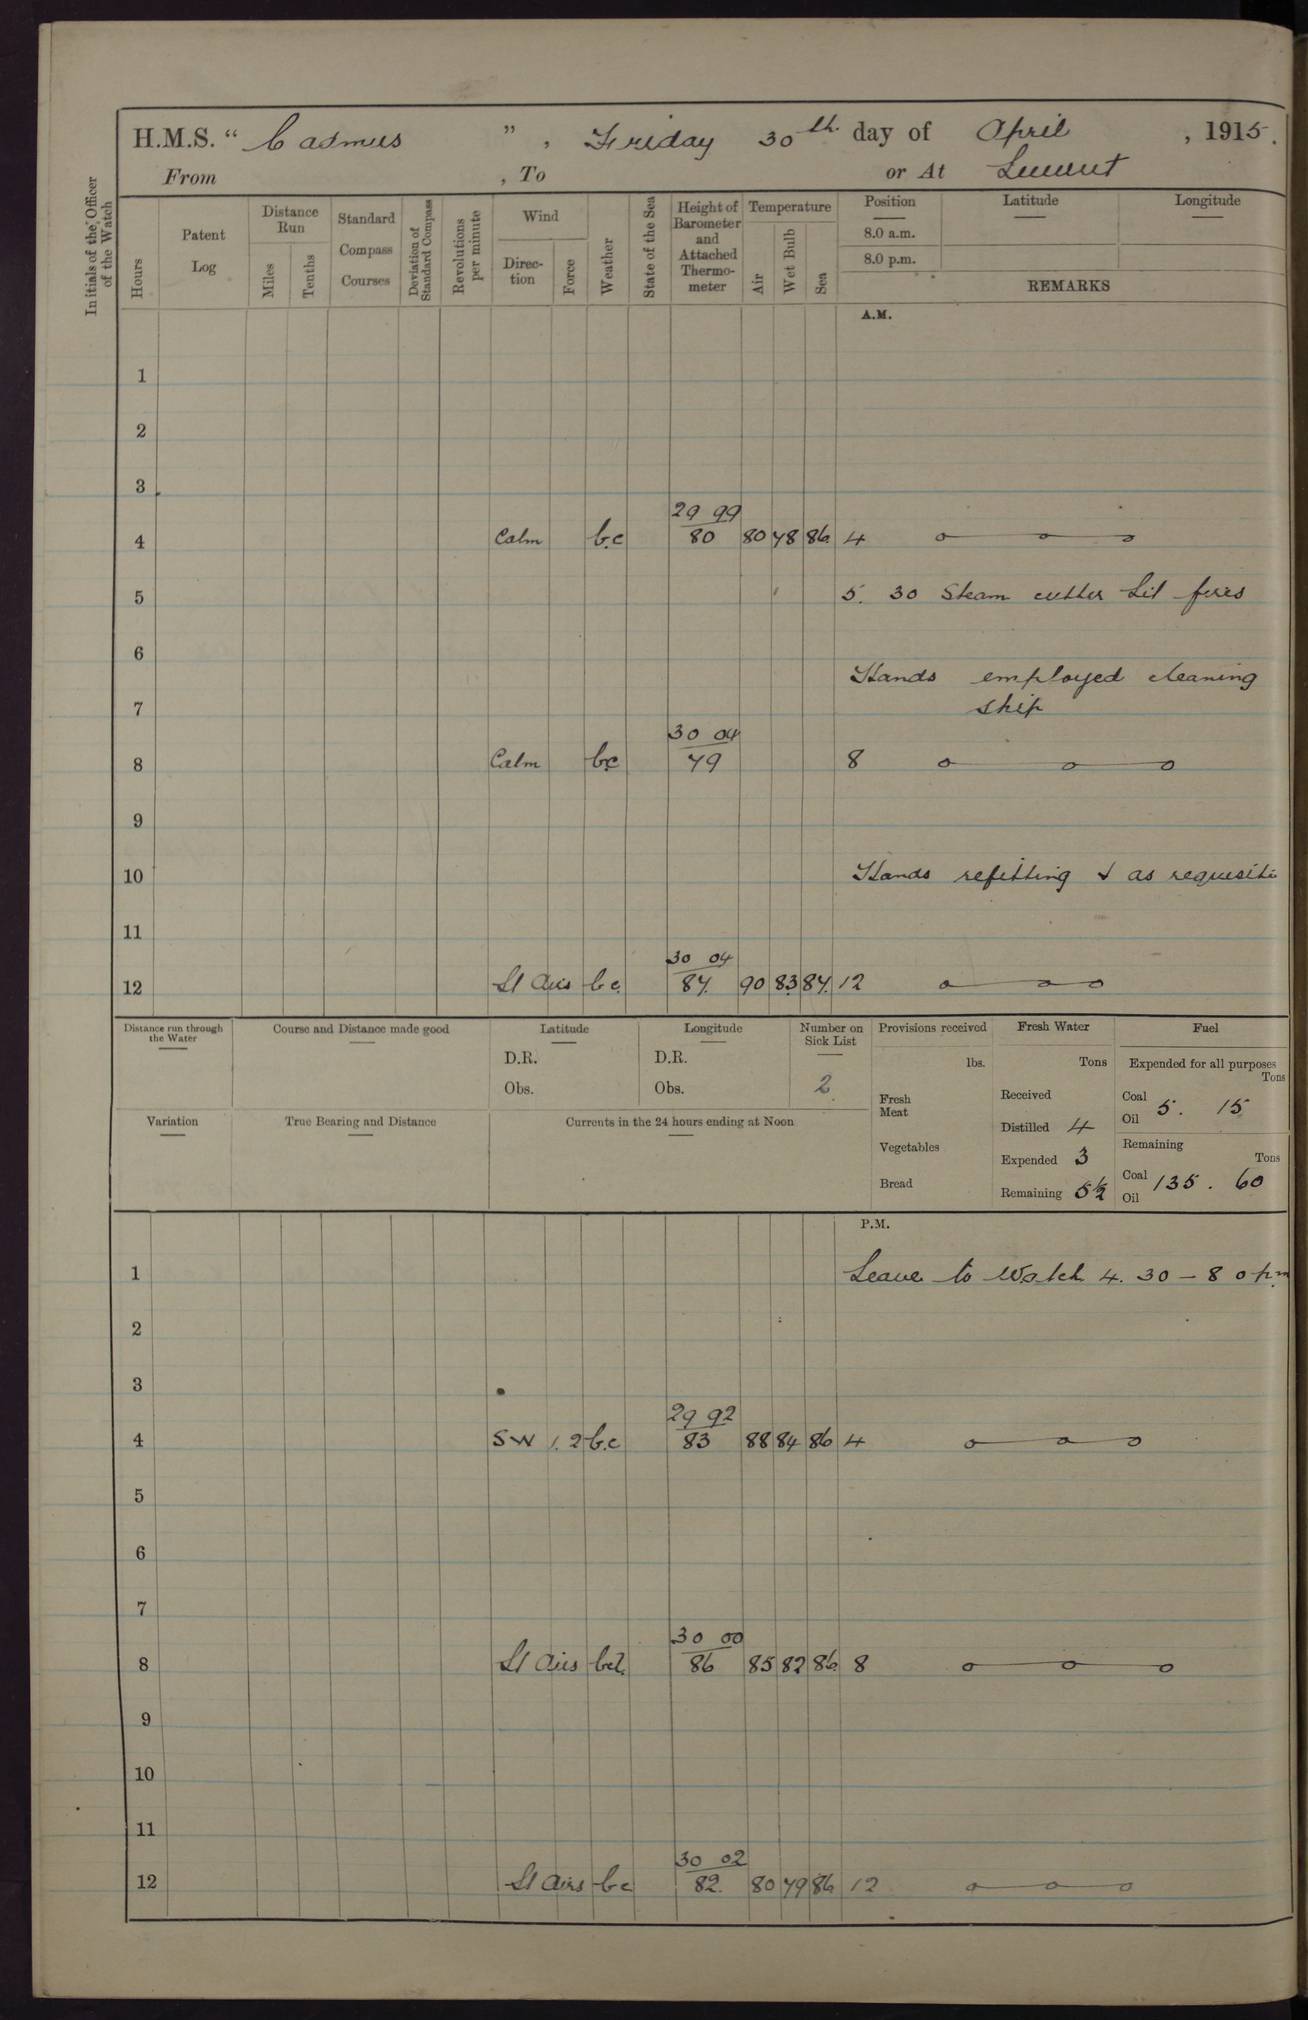 H.M.S. “ Cadmus ” , Friday 30th day of April , 1915.
From , To or At
Initials of the Officer of the Watch
Hours
Patent Log
Distance Run
Miles
Tenths
Standard Compass Courses
Deviation of Standard Compass
Revolutions per minute
Wind
Direction
Force
Weather
State of the Sea
Height of Barometer and Attached Thermometer
Temperature
Air
Wet Bulb
Sea
Position
8.0 a.m.
8.0 p.m.
Latitude
Longitude
REMARKS
A.M.
1
2
3
29 99
4 Calm b.c 80 80 78 86 4
5 5. 30 Steam cutter Lit fires
6
Hands employed cleaning
7 ship
30 04
8 Calm b.c 79 8
9
10 Hands refitting & as requisite
11
30 04
12 Lt Airs b c. 87. 90 83 87. 12
Distance run through the Water
Course and Distance made good
Latitude
D.R.
Obs.
Longitude
D.R.
Obs.
Number on Sick List
2
Variation
True Bearing and Distance
Currents in the 24 hours ending at Noon
Provisions received
lbs.
Fresh Meat
Vegetables
Bread
Fresh Water
Tons
Received
Distilled 4
Expended 3
Remaining 5½
Fuel
Expended for all purposes
Tons
Coal 5. 15
Oil
Remaining
Tons
Coal 135. 60
Oil
P.M.
1 Leave to Watch 4. 30 – 8 0 pm
2
3
29 92
4 SW 1.2 b.c 83 88 84 86 4
5
6
7
30 00
8 Lt Airs bcl. 86 85 82 86 8
9
10
11
30 02
12 Lt Airs b c 82. 80 79 86 12